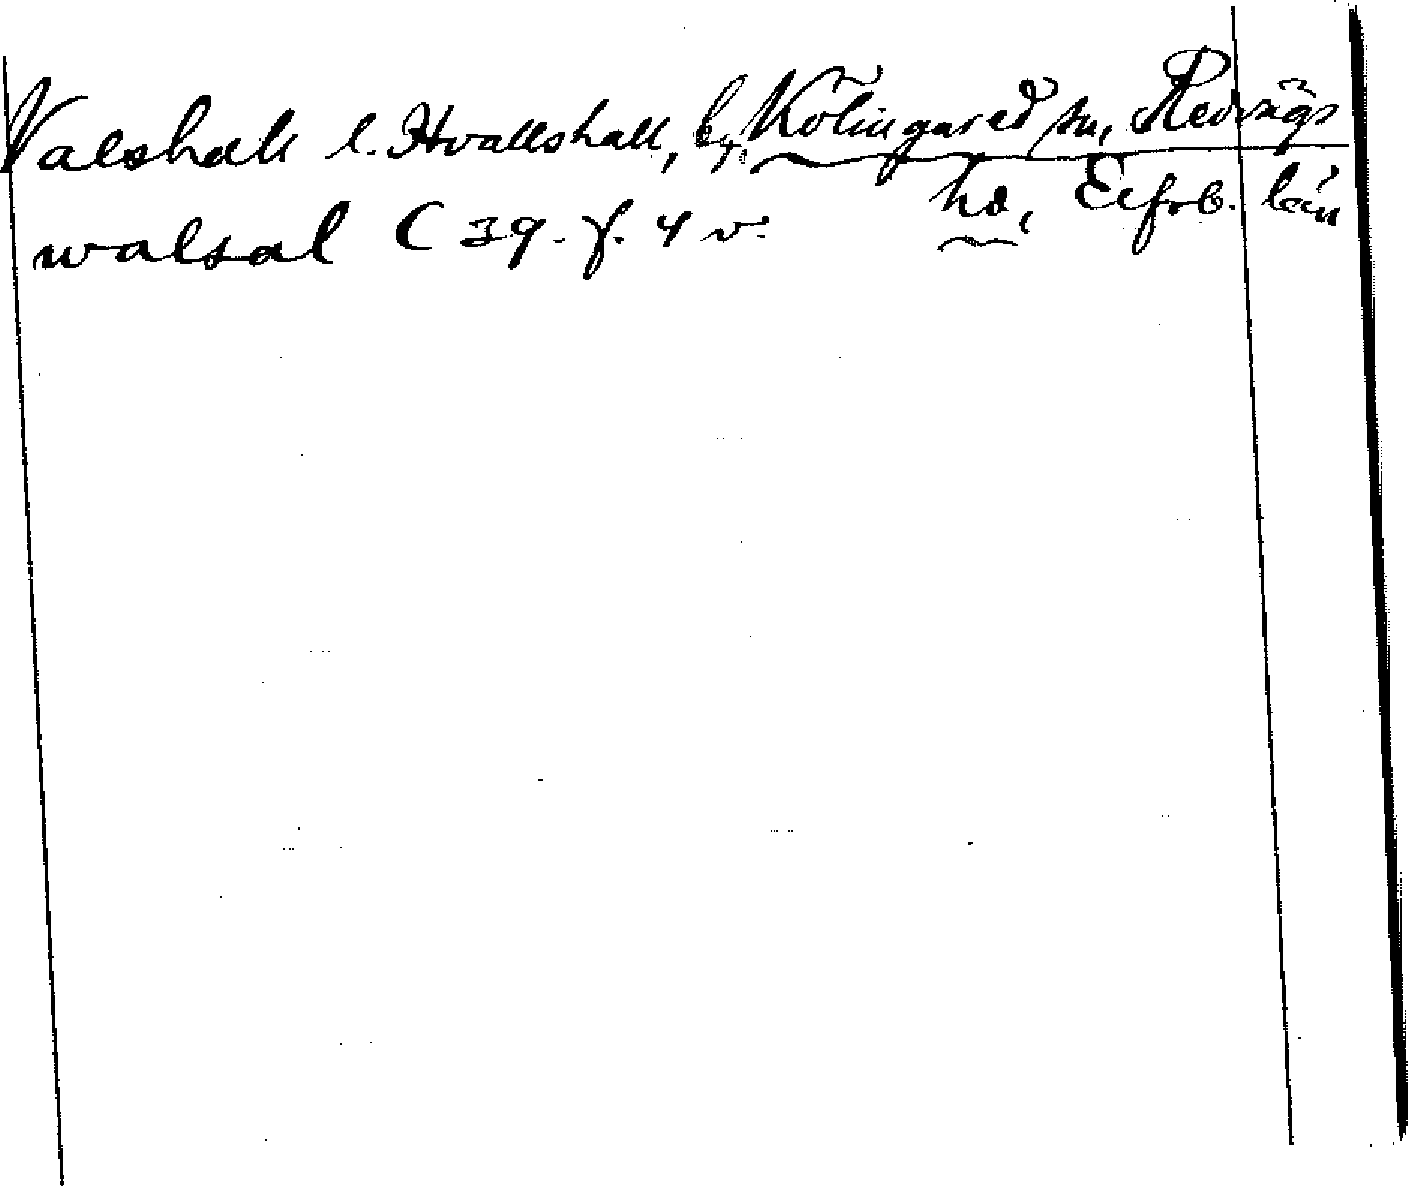 Valshall l. Hvalleshall, by, Kölingared sn, Redvägs
hd, Elfsb. län
walsal C 39. f. 4 v.